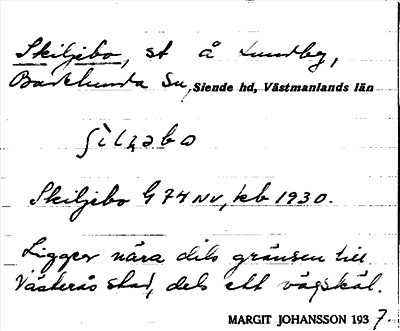 Skiljebo, st å Lundby,
Barklunda Su, Siende hd, Västmanlands län
ʃìlʒəbo
Skiljebo G74NV, kb 1930.
Ligger nära dels gränsen till
Västerås stad, dels ett vägskäl.
MARGIT JOHANSSON 1937.